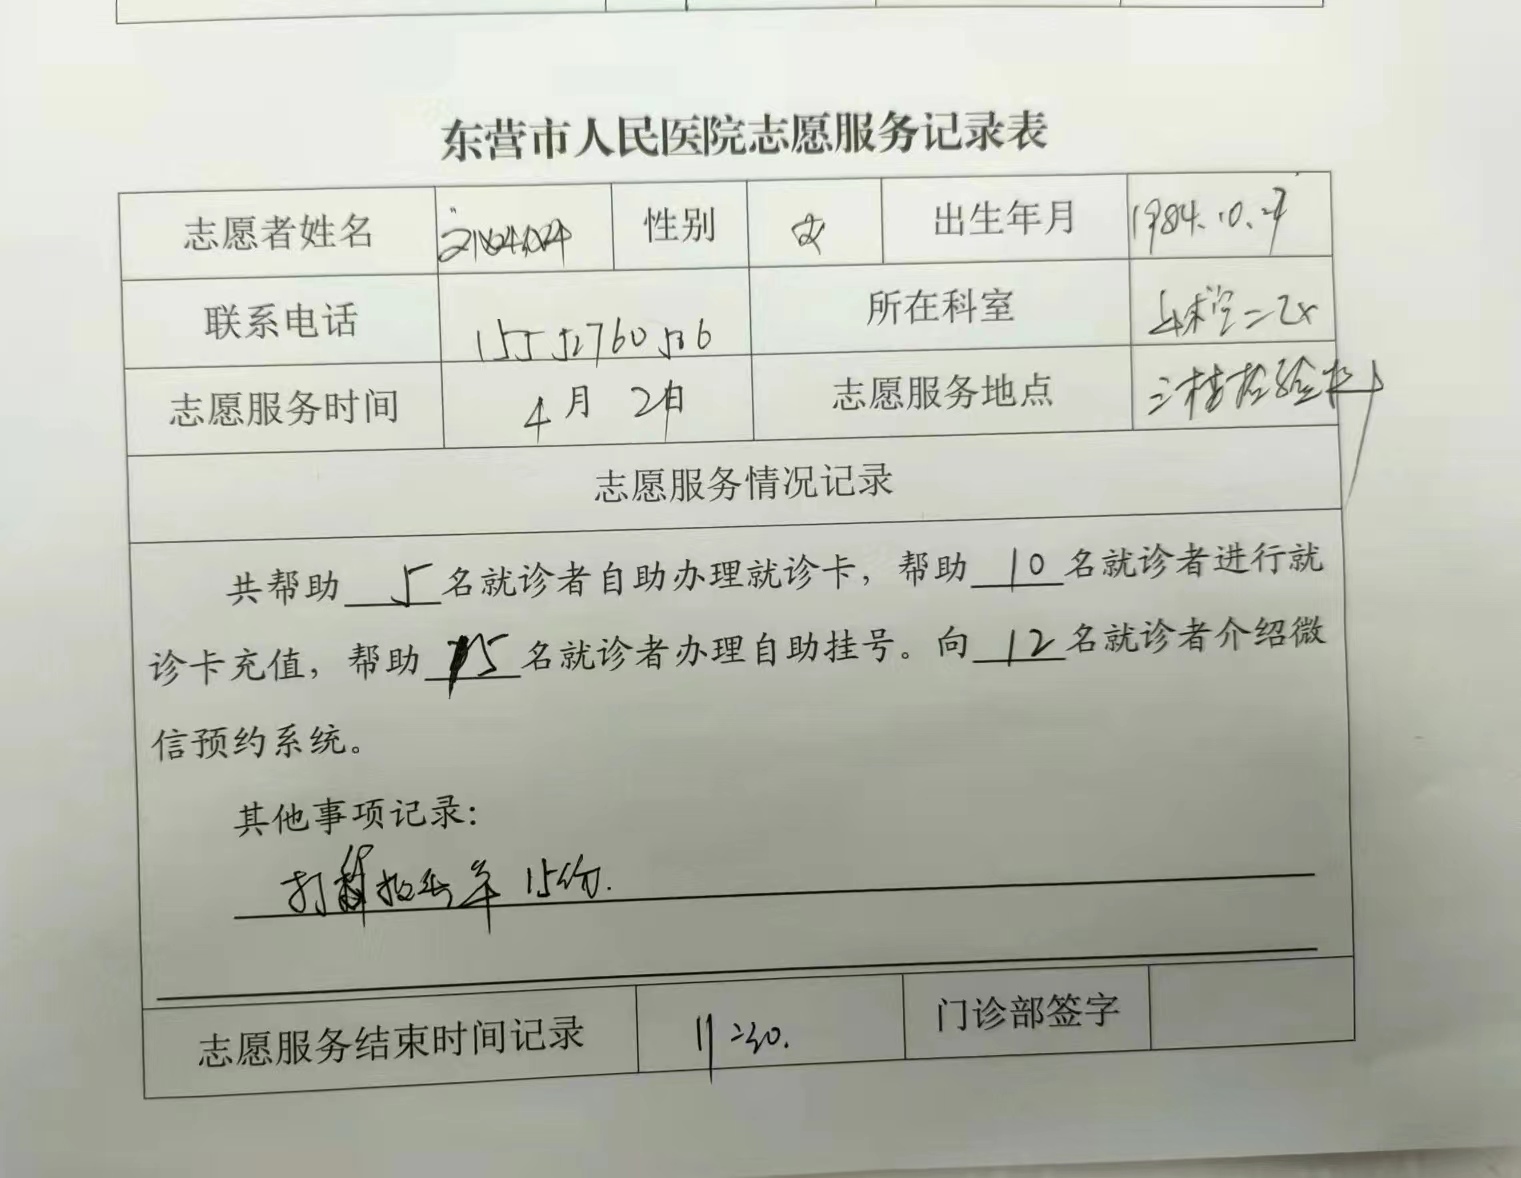 东营市人民医院志愿服务记录表
志愿者姓名 性别 女 出生年月 1984.10.
联系电话 15552760526 所在科室 手术室二区
志愿服务时间 4月2日 志愿服务地点 三楼检验
志愿服务情况记录
共帮助 5 名就诊者自助办理就诊卡，帮助 10 名就诊者进行就
诊卡充值，帮助 15 名就诊者办理自助挂号。向 12 名就诊者介绍微
信预约系统。
其他事项记录：
打 报告单 15份.
志愿服务结束时间记录 11:30. 门诊部签字